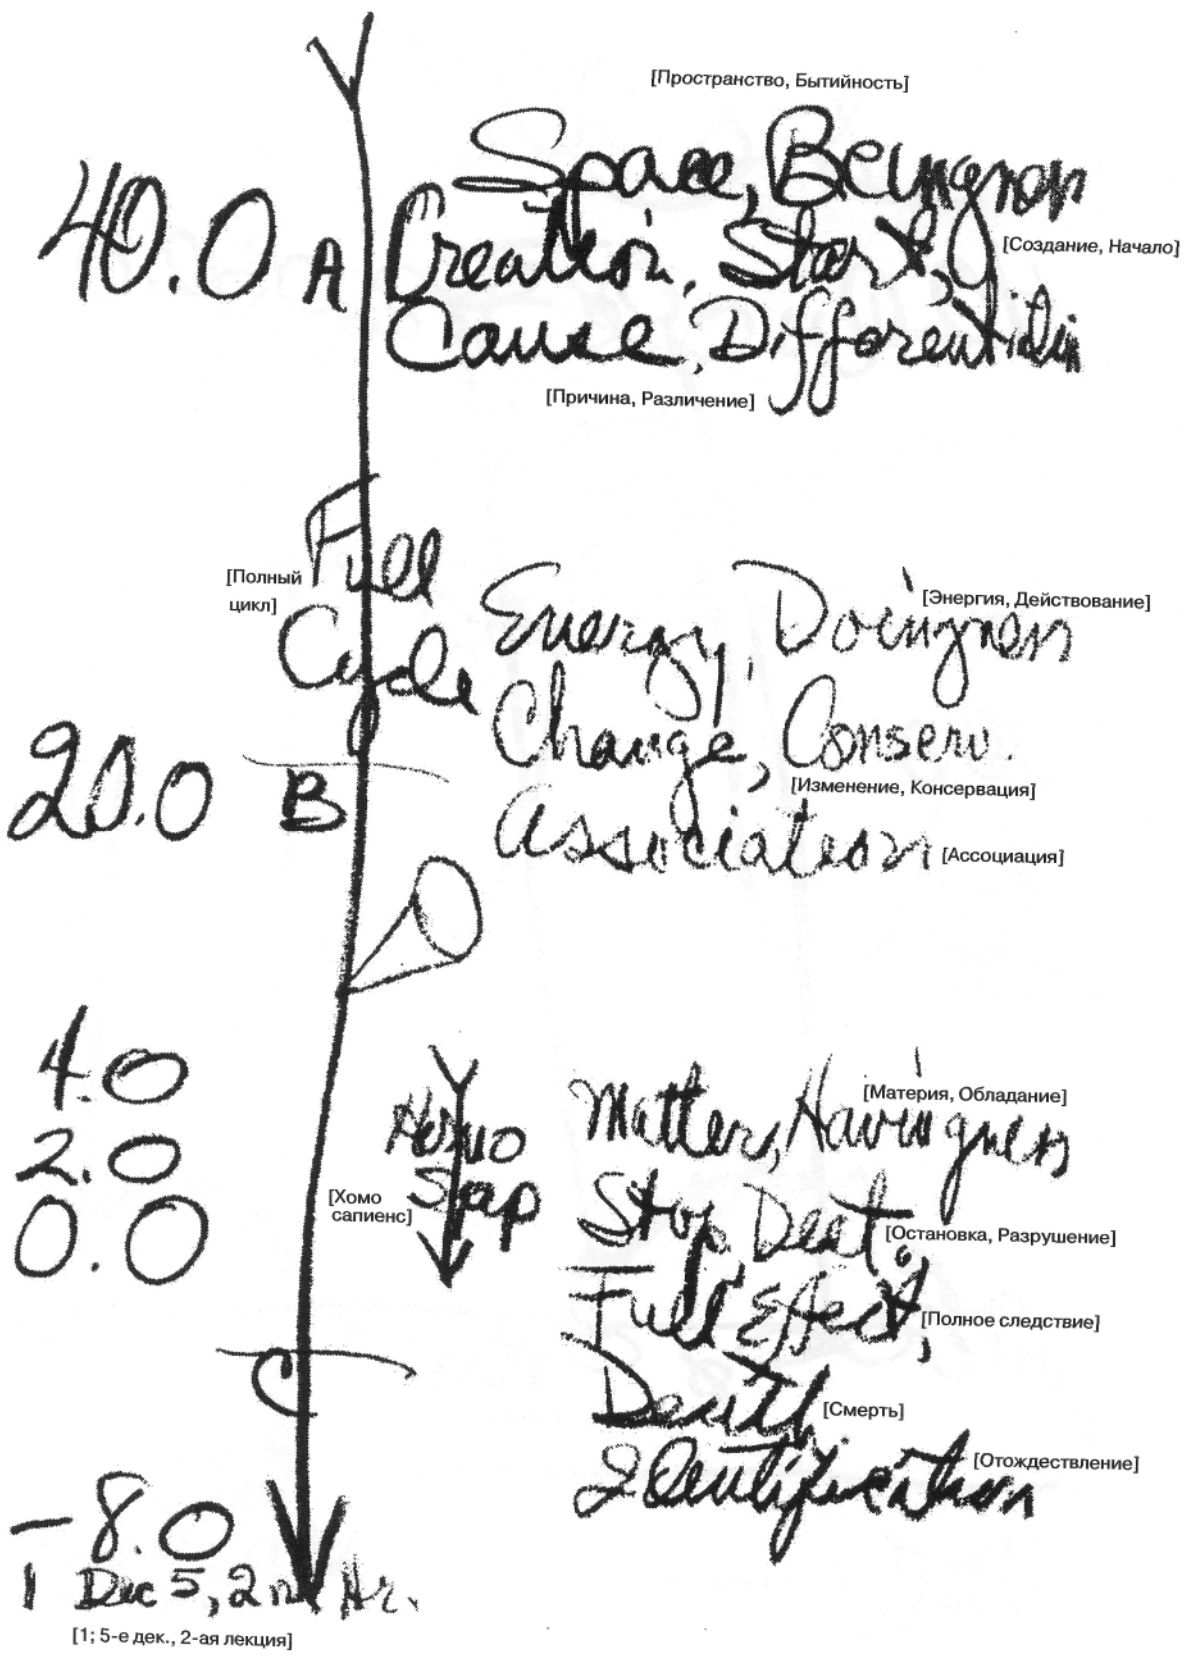 [Пространство, Бытийность]
Space, Beingness
40.0 A Creation, Start,
[Создание, Начало]
Cause, Differentiation
[Причина, Различение]
Full
[Полный
цикл]
Cycle
Energy, Doingness
[Энергия, Действование]
Change, Conserv.
[Изменение, Консервация]
20.0 B
Association
[Ассоциация]
4.0
Matter, Havingness
[Материя, Обладание]
2.0
Homo
Sap
[Хомо
сапиенс]
0.0
Stop, Dest.
[Остановка, Разрушение]
Full Effect,
[Полное следствие]
C
Death,
[Смерть]
Identification
[Отождествление]
-8.0
1 Dec 5, 2nd Hr.
[1; 5-е дек., 2-ая лекция]